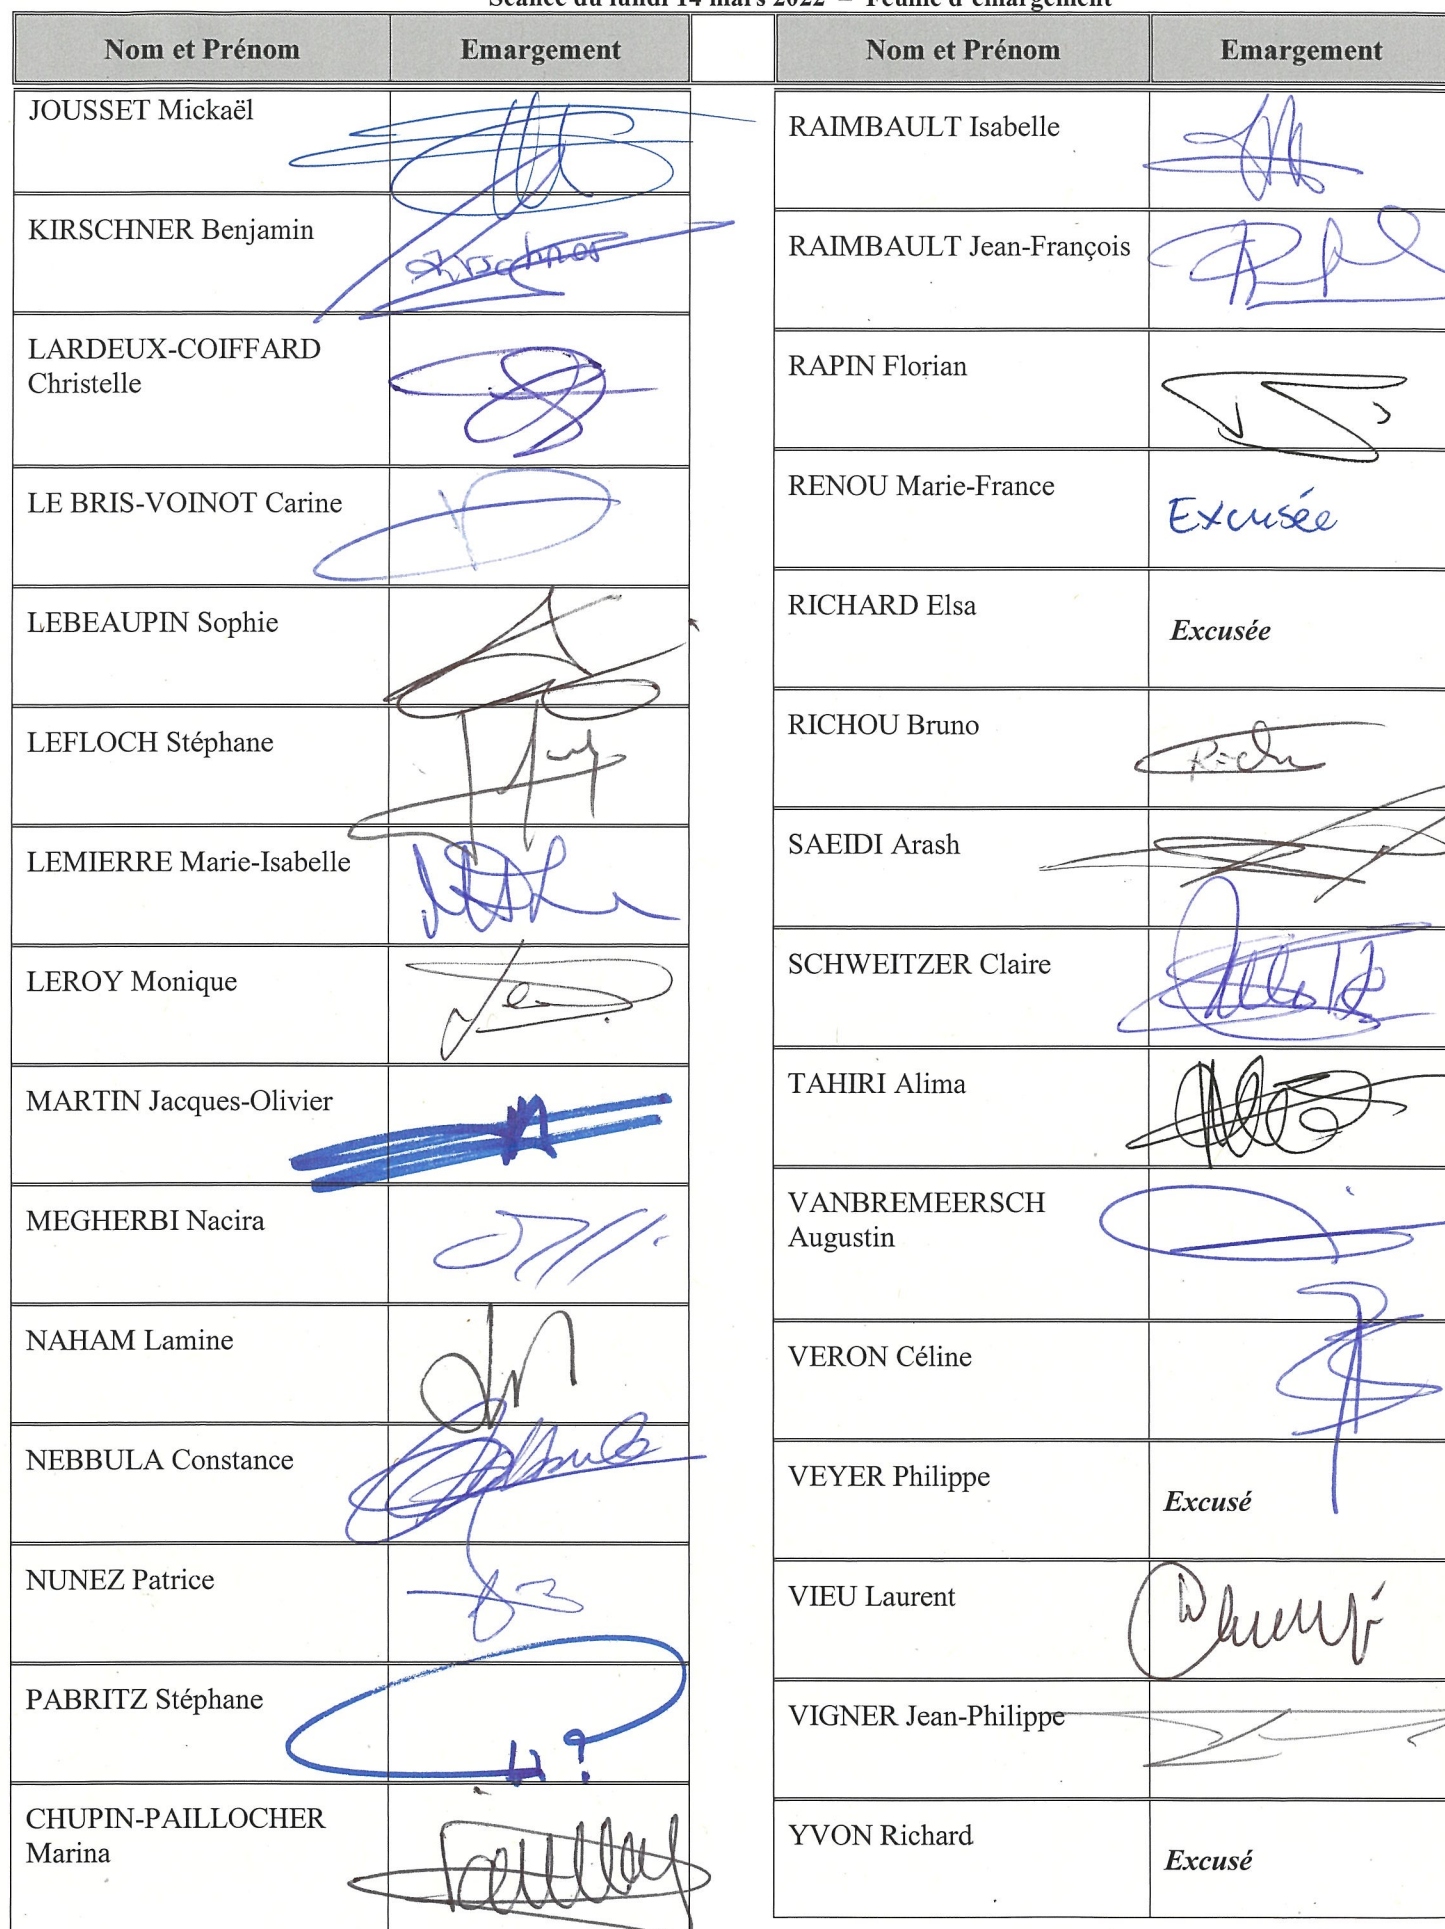 Séance du lundi 14 mars 2022 – Feuille d'émargement
Nom et Prénom Emargement
JOUSSET Mickaël
KIRSCHNER Benjamin
Kirschner
LARDEUX-COIFFARD
Christelle
LE BRIS-VOINOT Carine
LEBEAUPIN Sophie
LEFLOCH Stéphane
LEMIERRE Marie-Isabelle
LEROY Monique
MARTIN Jacques-Olivier
MEGHERBI Nacira
NAHAM Lamine
NEBBULA Constance
NUNEZ Patrice
PABRITZ Stéphane
CHUPIN-PAILLOCHER
Marina
Nom et Prénom Emargement
RAIMBAULT Isabelle
RAIMBAULT Jean-François
RAPIN Florian
RENOU Marie-France
Excusée
RICHARD Elsa
Excusée
RICHOU Bruno
SAEIDI Arash
SCHWEITZER Claire
TAHIRI Alima
VANBREMEERSCH
Augustin
VERON Céline
VEYER Philippe
Excusé
VIEU Laurent
VIGNER Jean-Philippe
YVON Richard
Excusé